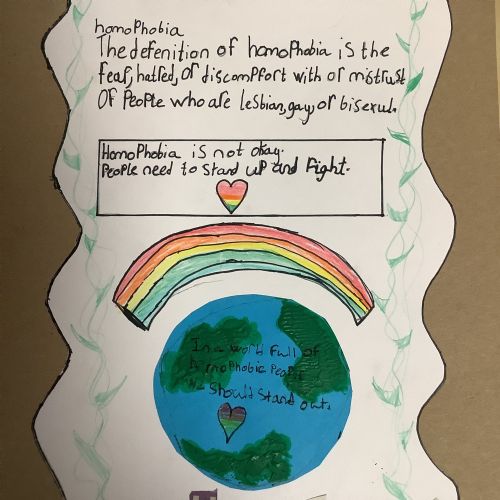 homoPhobia
The defenition of homoPhobia is the
fear, hatred, or discompfort with or mistrust
OF People who are lesbian, gay, or bisexul.
HomoPhobia is not okay.
People need to stand up and Fight.
In a world Full of
homoPhobic People
We should stand out.